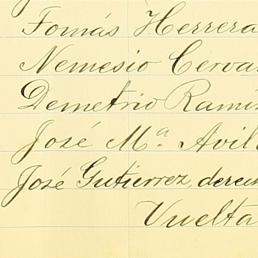 Tomás Herrera
Nemesio Cerva
Demetrio Ramí
José Mª. Avil
José Gutierrez, derec
Vuelta